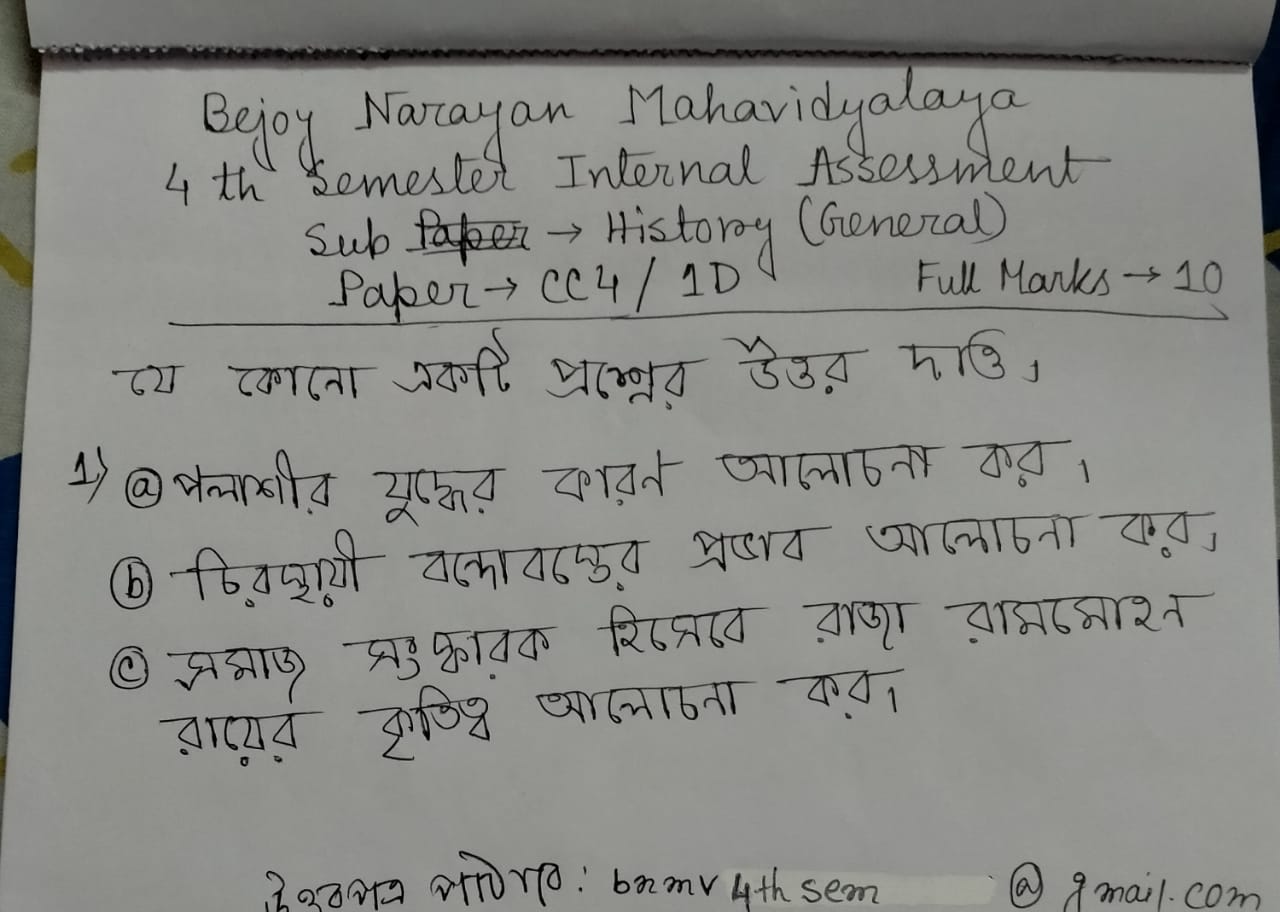 Bejoy Narayan Mahavidyalaya
4 th Semester Internal Assessment
Sub Paper → History (General)
Paper → CC4 / 1D Full Marks → 10
যে কোনো একটি প্রশ্নের উত্তর দাও।
1) ⓐ পলাশীর যুদ্ধের কারন আলোচনা কর।
ⓑ চিরস্থায়ী বন্দোবস্তের প্রভাব আলোচনা কর।
ⓒ সমাজ সংস্কারক হিসেবে রাজা রামমোহন
রায়ের কৃতিত্ব আলোচনা কর।
উত্তরপত্র পাঠাবে: bnmv 4th sem @ gmail.com